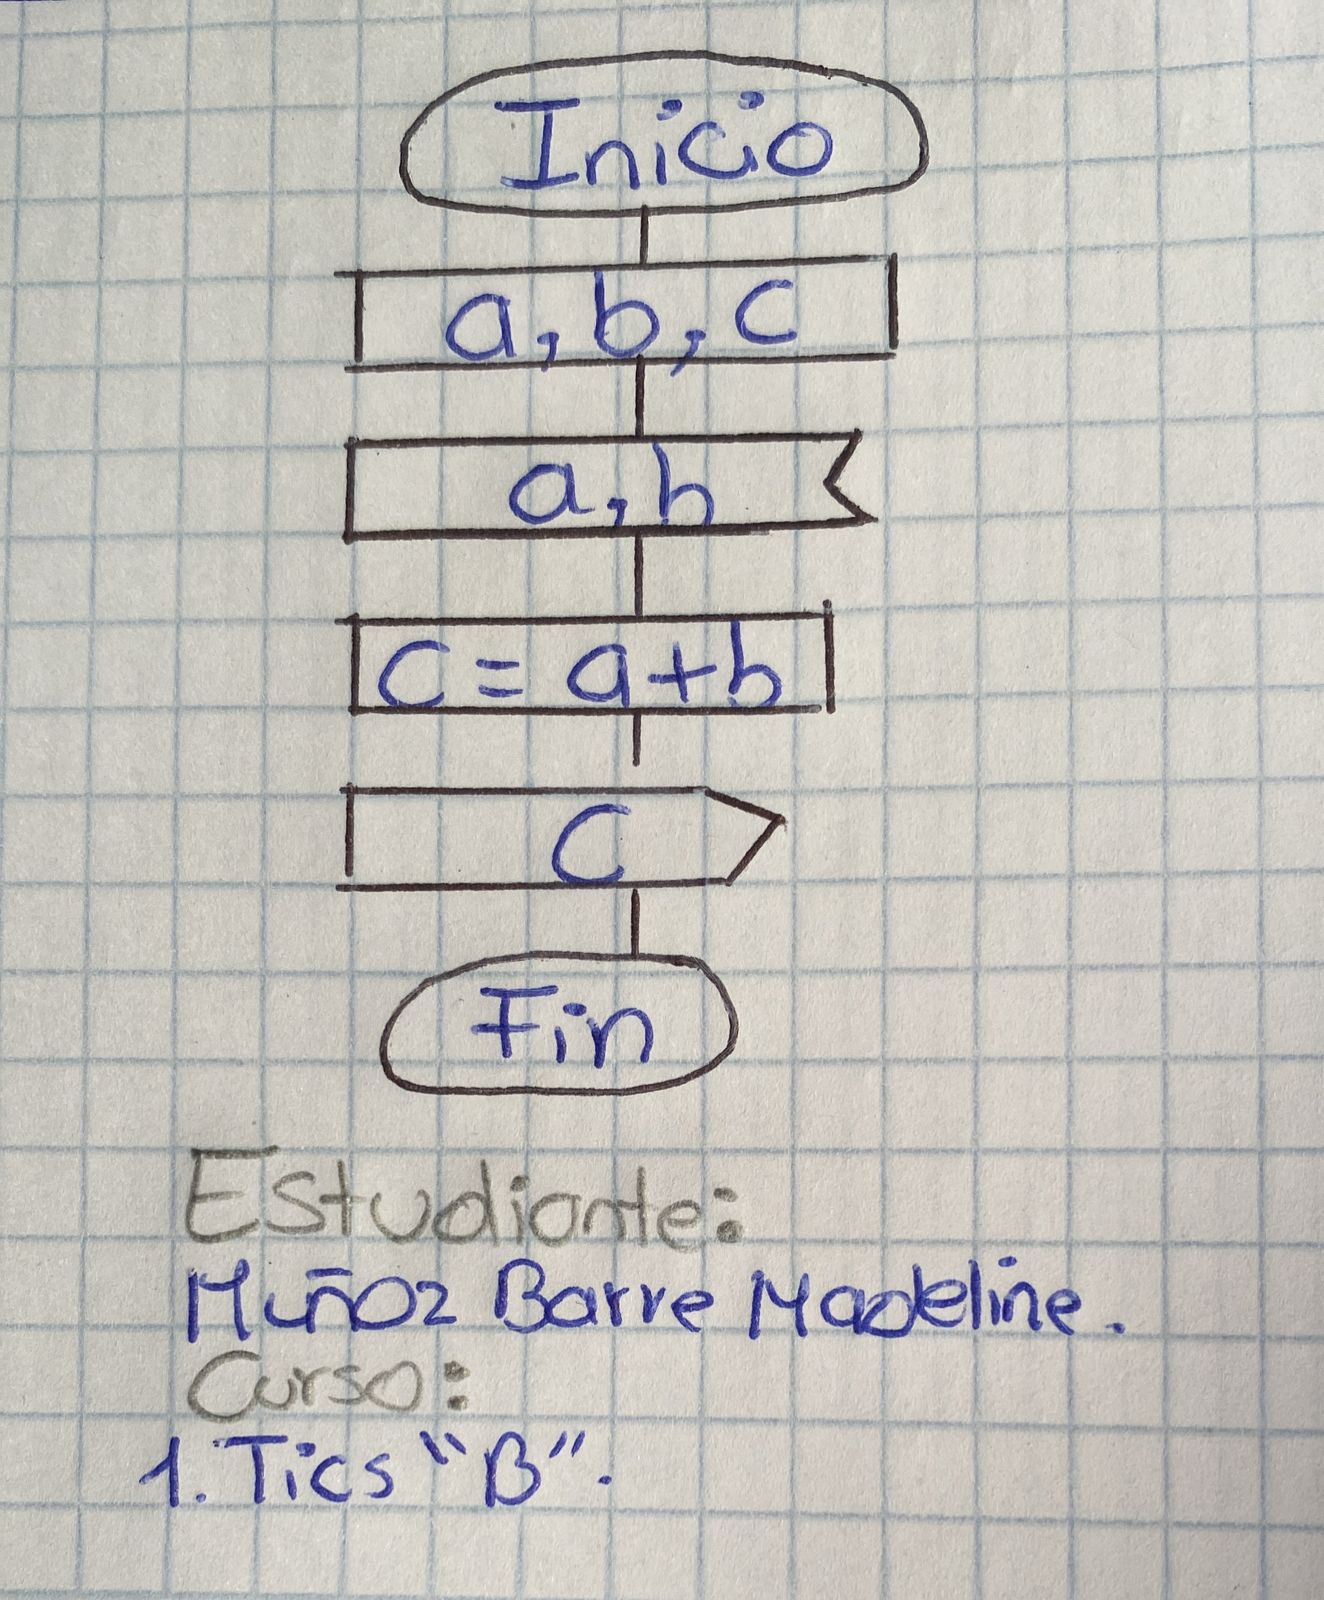 Inicio
a, b, c
a, b
c = a+b
C
Fin
Estudiante:
Muñoz Barre Madeline.
Curso:
1. Tics "B".